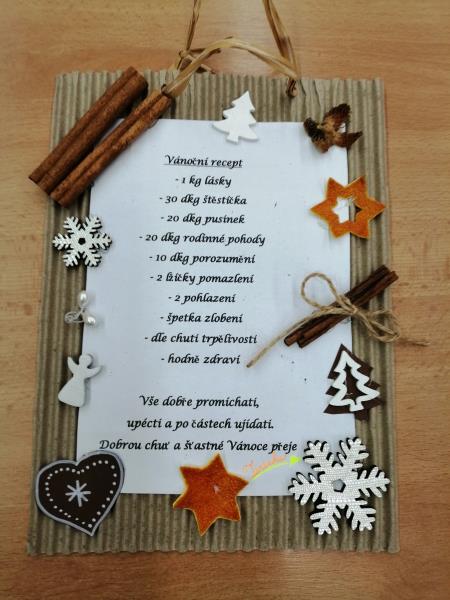 Vánoční recept
- 1 kg lásky
- 30 dkg štěstíčka
- 20 dkg pusinek
- 20 dkg rodinné pohody
- 10 dkg porozumění
- 2 lžičky pomazlení
- 2 pohlazení
- špetka zlobení
- dle chuti trpělivosti
- hodně zdraví
Vše dobře promíchati,
upécti a po částech ujídati.
Dobrou chuť a šťastné Vánoce přeje